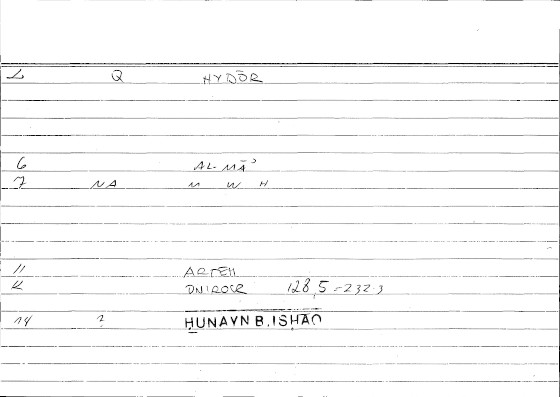 L Q HYDŌR
6 AL-MĀʾ
7 NA M W H
11 ARTEH
12 DNIROCR 128,5-232,3
14 ? ḤUNAYN B. ISḤĀQ